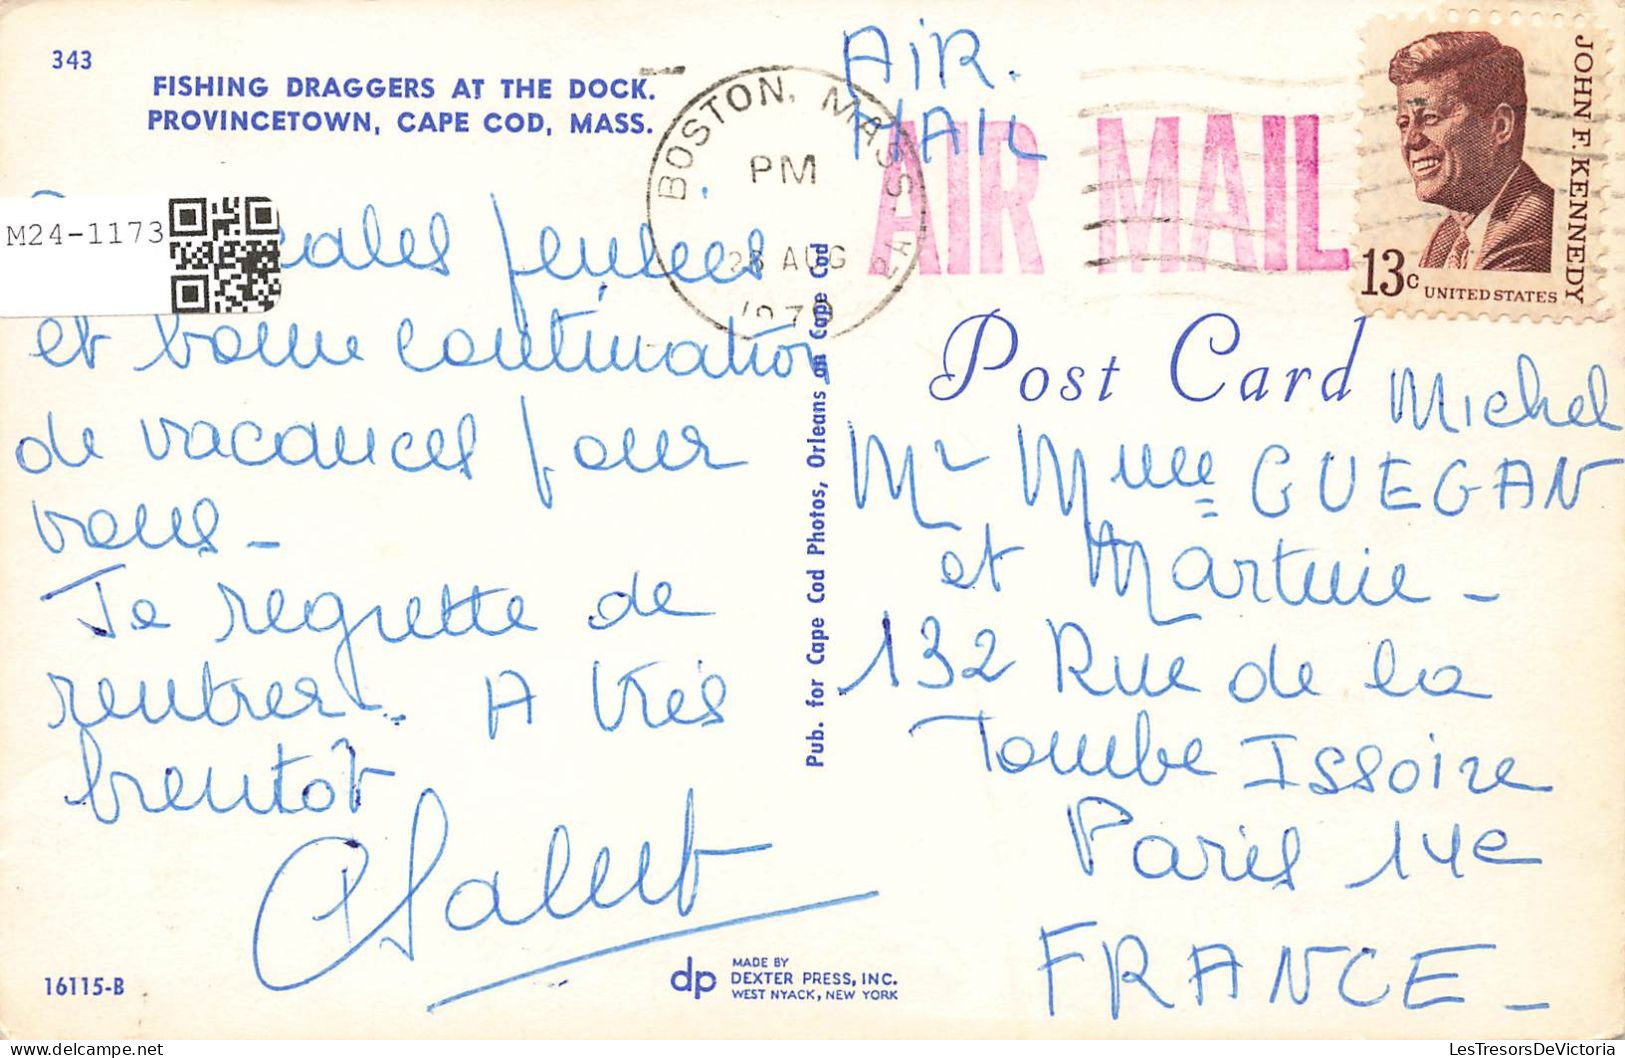 343
FISHING DRAGGERS AT THE DOCK.
PROVINCETOWN, CAPE COD, MASS.
M24-1173
pensées
et bonne continuation
de vacances pour
vous -
Je regrette de
rentrer. A très
brentôt
16115-B
BOSTON, MASS.
PM
AUG
Pub. for Cape Cod Photos, Orleans on Cape Cod
dp
MADE BY
DEXTER PRESS, INC.
WEST NYACK, NEW YORK
AIR.
MAIL
AIR MAIL
JOHN F. KENNEDY
13c
UNITED STATES
Post Card
Michel
Mr Mme GUEGAN
et Martine -
132 Rue de la
Tombe Issoire
Paris 14e
FRANCE -
LesTresorsDeVictoria